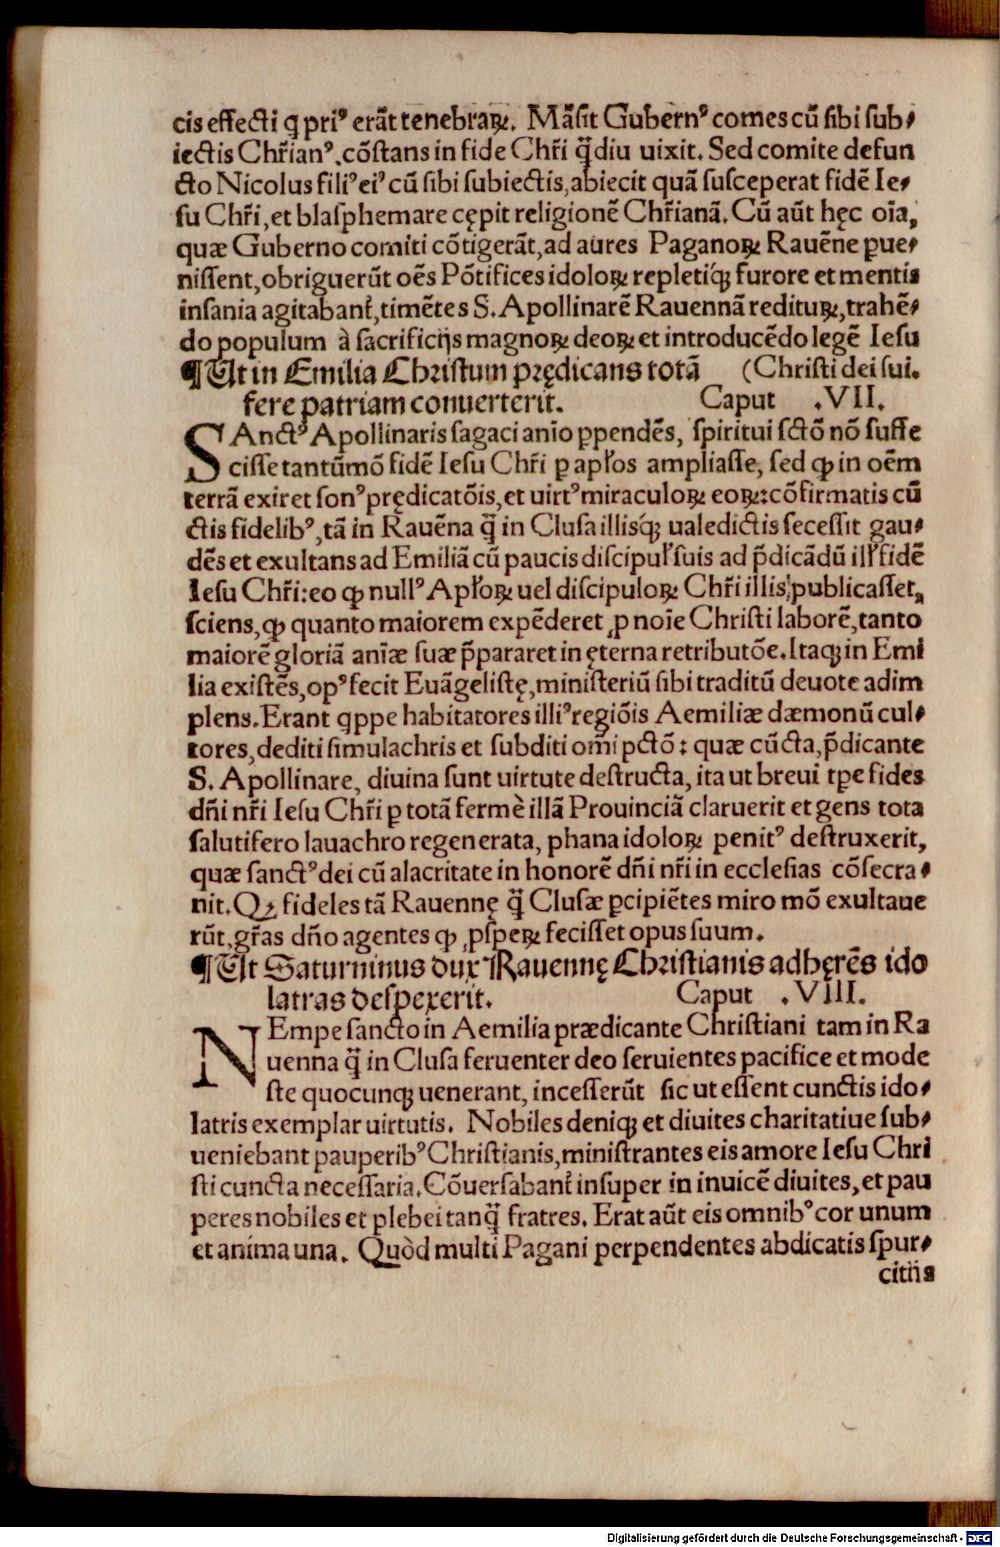 cis effecti q̄ pri⁹ erāt tenebraꝝ. Māsit Gubern⁹ comes cū sibi sub⸗
iectis Chr̄ian⁹. cōstans in fide Chr̄i q̄̈diu uixit. Sed comite defun
cto Nicolus fili⁹ ei⁹ cū sibi subiectis, abiecit quā susceperat fidē Ie⸗
su Chr̄i, et blasphemare cępit religionē Chr̄ianā. Cū aūt hęc oīa,
quæ Guberno comiti cōtigerāt, ad aures Paganoꝝ Rauēne ꝑue⸗
nissent, obriguerūt oēs Pōtifices idoloꝝ repletiqꝫ furore et mentis
insania agitabant̄, timētes S. Apollinarē Rauennā redituꝝ, trahē⸗
do populum à sacrificijs magnoꝝ deoꝝ et introducēdo legē Iesu
¶ Ut in Emilia Christum prędicans totā (Christi dei sui.
fere patriam conuerterit. Caput .VII.
SAnct⁹ Apollinaris sagaci anīo ꝑpendēs, spiritui sctō nō suffe
cisse tantūmō fidē Iesu Chr̄i ꝑ apl̄os ampliasse, sed ꝙ in oēm
terrā exiret son⁹ prędicatōis, et uirt⁹ miraculoꝝ eoꝝ: cōfirmatis cū
ctis fidelib⁹, tā in Rauēna q̄̈ in Clusa illisqꝫ ualedictis secessit gau⸗
dēs et exultans ad Emiliā cū paucis discipul̄ suis ad p̄dicādū ill̄ fidē
Iesu Chr̄i: eo ꝙ null⁹ Apl̄oꝝ uel discipuloꝝ Chr̄i illis publicasset,
sciens, ꝙ quanto maiorem expēderet ꝓ noīe Christi laborē, tanto
maiorē gloriā anīæ suæ p̄pararet in ęterna retributōe. Itaqꝫ in Emi
lia existēs, op⁹ fecit Euāgelistę, ministeriū sibi traditū deuote adim
plens. Erant qppe habitatores illi⁹ regiōis Aemiliæ dæmonū cul⸗
tores, dediti simulachris et subditi omī pctō: quæ cūcta, p̄dicante
S. Apollinare, diuina sunt uirtute destructa, ita ut breui tꝑe fides
dn̄i nr̄i Iesu Chr̄i ꝑ totā fermè illā Prouinciā claruerit et gens tota
salutifero lauachro regenerata, phana idoloꝝ penit⁹ destruxerit,
quæ sanct⁹ dei cū alacritate in honorē dn̄i nr̄i in ecclesias cōsecra⸗
nit. Qꝫ fideles tā Rauennę q̄̈ Clusæ ꝑcipiētes miro mō exultaue
rūt, gr̄as dn̄o agentes ꝙ ꝓspeꝝ fecisset opus suum.
¶ Ut Saturninus dux Rauennę Christianis adhęrēs ido
latras despexerit. Caput .VIII.
NEmpe sancto in Aemilia prædicante Christiani tam in Ra
uenna q̄̈ in Clusa feruenter deo seruientes pacifice et mode
ste quocunqꝫ uenerant, incesserūt sic ut essent cunctis ido⸗
latris exemplar uirtutis. Nobiles deniqꝫ et diuites charitatiue sub⸗
ueniebant pauperib⁹ Christianis, ministrantes eis amore Iesu Chri
sti cuncta necessaria. Cōuersabant̄ insuper in inuicē diuites, et pau
peres nobiles et plebei tanq̄̈ fratres. Erat aūt eis omnib⁹ cor unum
et anima una. Quòd multi Pagani perpendentes abdicatis spur⸗
citiis
Digitalisierung gefördert durch die Deutsche Forschungsgemeinschaft - DFG